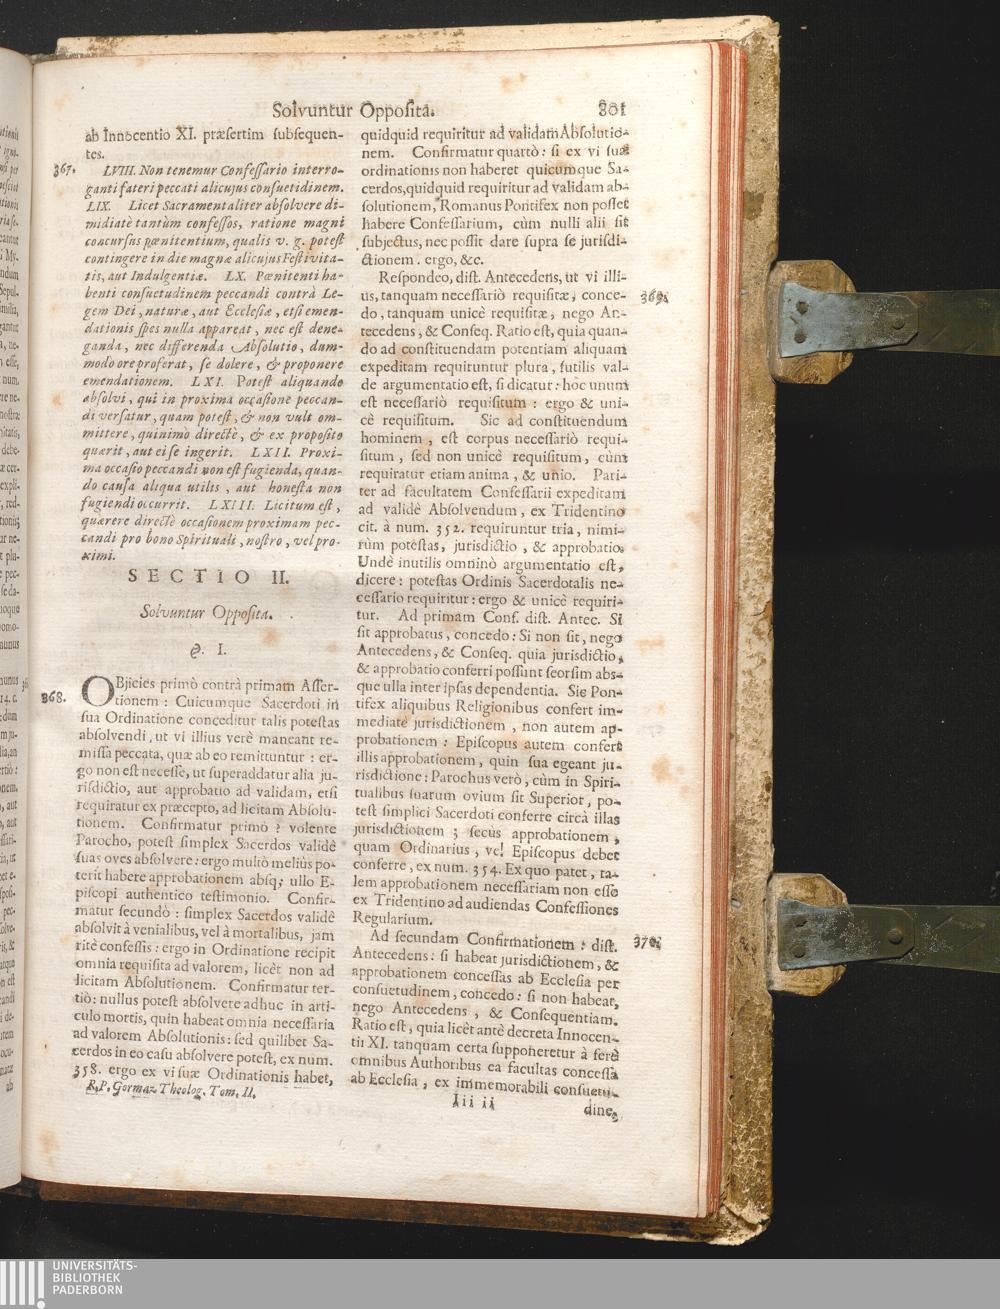 Solvuntur Opposita. 801
ab Innocentio XI. præsertim subsequen-
tes.
367. LVIII. Non tenemur Confessario interro-
ganti fateri peccati alicujus consuetudinem.
LIX. Licet Sacramentaliter absolvere di-
midiatè tantùm confessos, ratione magni
concursus pœnitentium, qualis v. g. potest
contingere in die magnæ alicujus Festivita-
tis, aut Indulgentiæ. LX. Pœnitenti ha-
benti consuetudinem peccandi contrà Le-
gem Dei, naturæ, aut Ecclesiæ, etsi emen-
dationis spes nulla appareat, nec est dene-
ganda, nec differenda Absolutio, dum-
modo ore proferat, se dolere, & proponere
emendationem. LXI. Potest aliquando
absolvi, qui in proxima occasione peccan-
di versatur, quam potest, & non vult om-
mittere, quinimò directè, & ex proposito
quærit, aut ei se ingerit. LXII. Proxi-
ma occasio peccandi non est fugienda, quan-
do causa aliqua utilis, aut honesta non
fugiendi occurrit. LXIII. Licitum est,
quærere directè occasionem proximam pec-
candi pro bono Spirituali, nostro, vel pro-
ximi.
SECTIO II.
Solvuntur Opposita.
§. I.
368. OBjicies primò contrà primam Asser-
tionem: Cuicumque Sacerdoti in
sua Ordinatione conceditur talis potestas
absolvendi, ut vi illius verè maneant re-
missa peccata, quæ ab eo remittuntur: er-
go non est necesse, ut superaddatur alia ju-
risdictio, aut approbatio ad validam, etsi
requiratur ex præcepto, ad licitam Absolu-
tionem. Confirmatur primò: volente
Parocho, potest simplex Sacerdos validè
suas oves absolvere: ergo multò meliùs po-
terit habere approbationem absq; ullo E-
piscopi authentico testimonio. Confir-
matur secundò: simplex Sacerdos validè
absolvit à venialibus, vel à mortalibus, jam
ritè confessis: ergo in Ordinatione recipit
omnia requisita ad valorem, licèt non ad
licitam Absolutionem. Confirmatur ter-
tiò: nullus potest absolvere adhuc in arti-
culo mortis, quin habeat omnia necessaria
ad valorem Absolutionis: sed quilibet Sa-
cerdos in eo casu absolvere potest, ex num.
358. ergo ex vi suæ Ordinationis habet,
R.P. Gormaz Theolog. Tom. II.
quidquid requiritur ad validam Absolutio-
nem. Confirmatur quartò: si ex vi suæ
ordinationis non haberet quicumque Sa-
cerdos, quidquid requiritur ad validam ab-
solutionem, Romanus Pontifex non posset
habere Confessarium, cùm nulli alii sit
subjectus, nec possit dare supra se jurisdi-
ctionem. ergo, &c.
Respondeo, dist. Antecedens, ut vi illi-
us, tanquam necessariò requisitæ, conce-
do, tanquam unicè requisitæ, nego An-
tecedens, & Conseq. Ratio est, quia quan-
do ad constituendam potentiam aliquam
expeditam requiruntur plura, futilis val-
de argumentatio est, si dicatur: hoc unum
est necessariò requisitum: ergo & uni-
cè requisitum. Sic ad constituendum
hominem, est corpus necessariò requi-
situm, sed non unicè requisitum, cùm
requiratur etiam anima, & unio. Pari-
ter ad facultatem Confessarii expeditam
ad validè Absolvendum, ex Tridentino
cit. à num. 352. requiruntur tria, nimi-
rùm potestas, jurisdictio, & approbatio.
Undè inutilis omninò argumentatio est,
dicere: potestas Ordinis Sacerdotalis ne-
cessario requiritur: ergo & unicè requiri-
tur. Ad primam Conf. dist. Antec. Si
sit approbatus, concedo: Si non sit, nego
Antecedens, & Conseq. quia jurisdictio,
& approbatio conferri possunt seorsim abs-
que ulla inter ipsas dependentia. Sic Pon-
tifex aliquibus Religionibus confert im-
mediatè jurisdictionem, non autem ap-
probationem: Episcopus autem confert
illis approbationem, quin sua egeant ju-
risdictione: Parochus verò, cùm in Spiri-
tualibus suarum ovium sit Superior, po-
test simplici Sacerdoti conferre circà illas
jurisdictionem; secùs approbationem,
quam Ordinarius, vel Episcopus debet
conferre, ex num. 354. Ex quo patet, ta-
lem approbationem necessariam non esse
ex Tridentino ad audiendas Confessiones
Regularium.
369.
Ad secundam Confirmationem: dist.
Antecedens: si habeat jurisdictionem, &
approbationem concessas ab Ecclesia per
consuetudinem, concedo: si non habeat,
nego Antecedens, & Consequentiam.
Ratio est, quia licèt antè decreta Innocen-
tii XI. tanquam certa supponeretur à ferè
omnibus Authoribus ea facultas concessa
ab Ecclesia, ex immemorabili consuetu-
370.
Iii ii dine,
UNIVERSITÄTS-
BIBLIOTHEK
PADERBORN